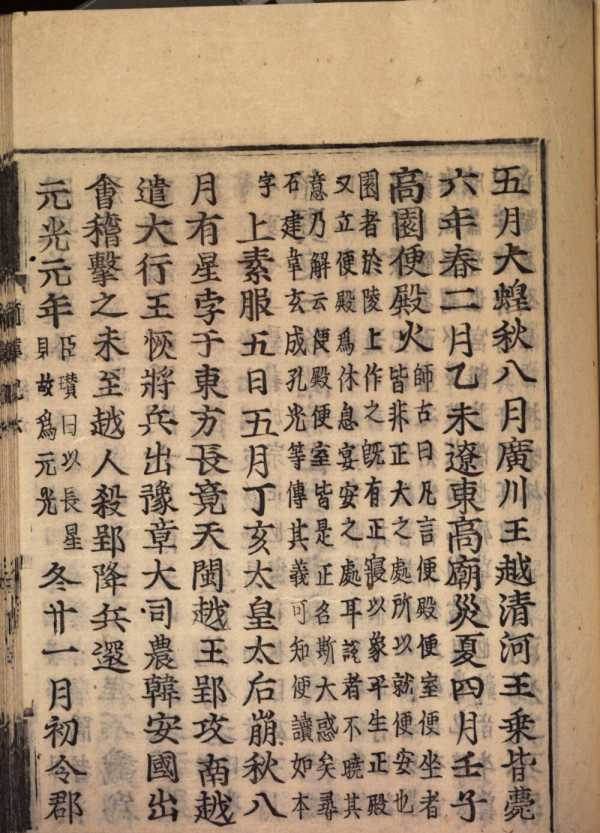 五月大蝗秋八月廣川王越清河王乘皆薨
六年春二月乙未遼東高廟災夏四月壬子
高園便殿火師古曰凡言便殿便室便坐者
皆非正大之處所以就便安也
園者於陵上作之既有正寢以象平生正殿
又立便殿爲休息宴安之處耳說者不曉其
意乃解云便殿便室皆是正名斯大惑矣尋
石建韋玄成孔光等傳其義可知便讀如本
字 上素服五日五月丁亥太皇太后崩秋八
月有星孛于東方長竟天閩越王郢攻南越
遣大行王恢將兵出豫章大司農韓安國出
會稽擊之未至越人殺郢降兵還
元光元年臣瓚曰以長星
見故爲元光 冬廿一月初令郡